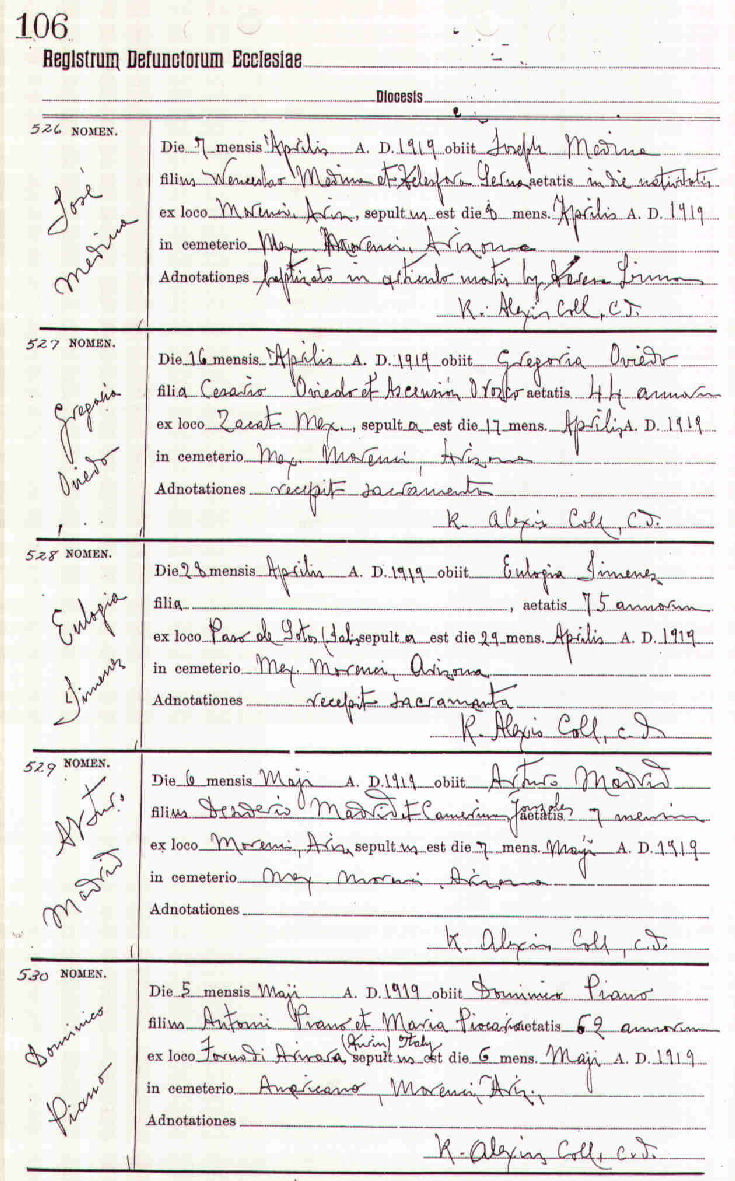 106
Registrum Defunctorum Ecclesiae
Diocesis
526 NOMEN.
José
Medina
Die 7 mensis Aprilis A. D. 1919 obiit Joseph Medina
filius Wenceslao Medina et Telesfora Serna aetatis in die nativitatis
ex loco Morenci, Ariz, sepultus est die 8 mens. Aprilis A. D. 1919
in cemeterio Mex Morenci, Arizona
Adnotationes baptizato in articulo mortis by
K. Alexis Coll, C.D.
527 NOMEN.
Gregoria
Oviedo
Die 16 mensis Aprilis A. D. 1919 obiit Gregoria Oviedo
filia Cesario Oviedo et Ascensión Orozco aetatis 44 annorum
ex loco Zacat. Mex., sepulta est die 17 mens. Aprilis A. D. 1919
in cemeterio Mex Morenci, Arizona
Adnotationes recepit sacramenta
K. Alexis Coll, C.D.
528 NOMEN.
Eulogia
Jimenez
Die 28 mensis Aprilis A. D. 1919 obiit Eulogia Jimenez
filia , aetatis 75 annorum
ex loco Paso de Sotos (Jal, sepulta est die 29 mens. Aprilis A. D. 1919
in cemeterio Mex Morenci, Arizona
Adnotationes recepit sacramenta
K. Alexis Coll, C.D.
529 NOMEN.
Artur.
Madrid
Die 6 mensis Maji A. D. 1919 obiit Arturo Madrid
filius Desiderio Madrid et Gonzales aetatis 7 mensium
ex loco Morenci, Ariz, sepultus est die 7 mens. Maji A. D. 1919
in cemeterio Mex Morenci, Arizona
Adnotationes
K. Alexis Coll, C.D.
530 NOMEN.
Dominico
Piano
Die 5 mensis Maji A. D. 1919 obiit Dominico Piano
filius Antonii Piano et Maria aetatis 62 annorum
ex loco Forno di (Turin) Italy sepultus est die 6 mens. Maji A. D. 1919
in cemeterio Americano, Morenci, Ariz.,
Adnotationes
K. Alexis Coll, C.D.